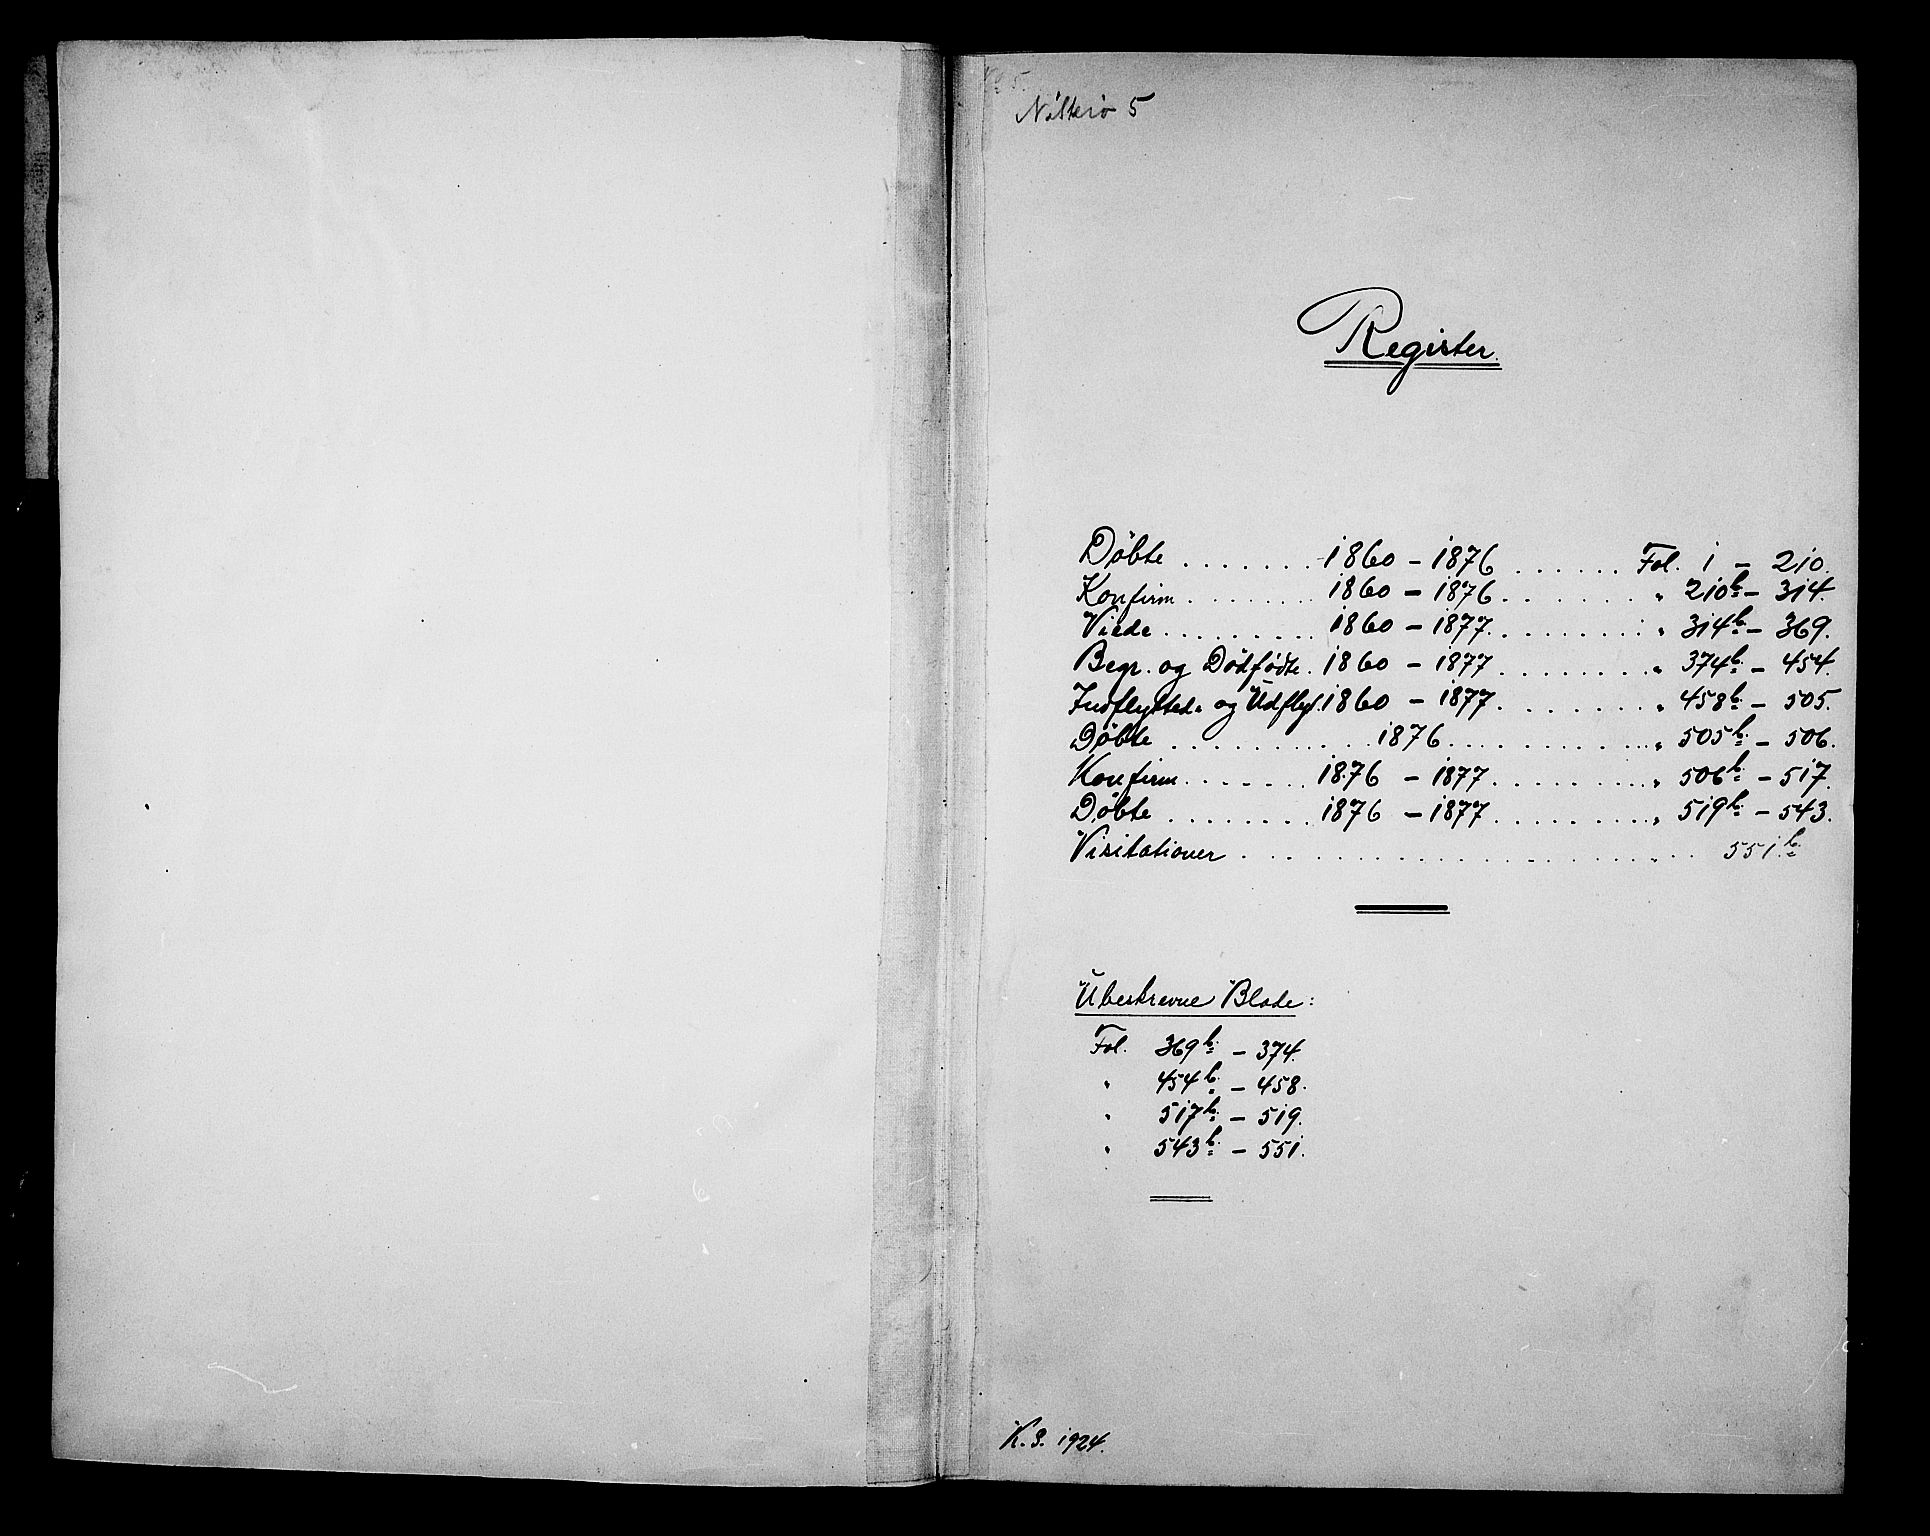 Nøtterø 5
Register.
Døbte ....... 1860 – 1876 ...... Fol. 1 – 210.
Konfirm ....... 1860 – 1876 ....... " 210b – 314.
Viede ......... 1860 – 1877 ....... " 314b – 369.
Begr. og Dødfødte. 1860 – 1877 ....... " 374b – 454.
Indflyttede og Udflyt. 1860 – 1877 ....... " 458b – 505.
Døbte .......... 1876 .......... " 505b – 506.
Konfirm ...... 1876 – 1877 ........ " 506b – 517.
Døbte ........ 1876 – 1877 ........ " 519b – 543.
Visitationer .................... 551b
Ubeskrevne Blade:
Fol. 369b – 374.
" 454b – 458.
" 517b – 519.
" 543b – 551.
1924.